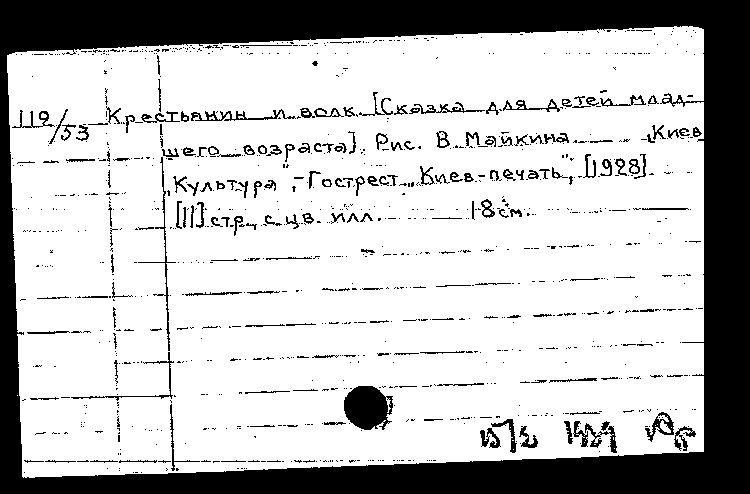 119/53 Крестьянин и волк. [Сказка для детей млад-
шего возраста]. Рис. В. Майкина. Киев
„Культура", - Гострест „Киев-печать", [1928].
[11] стр., с цв. илл. 18 см.